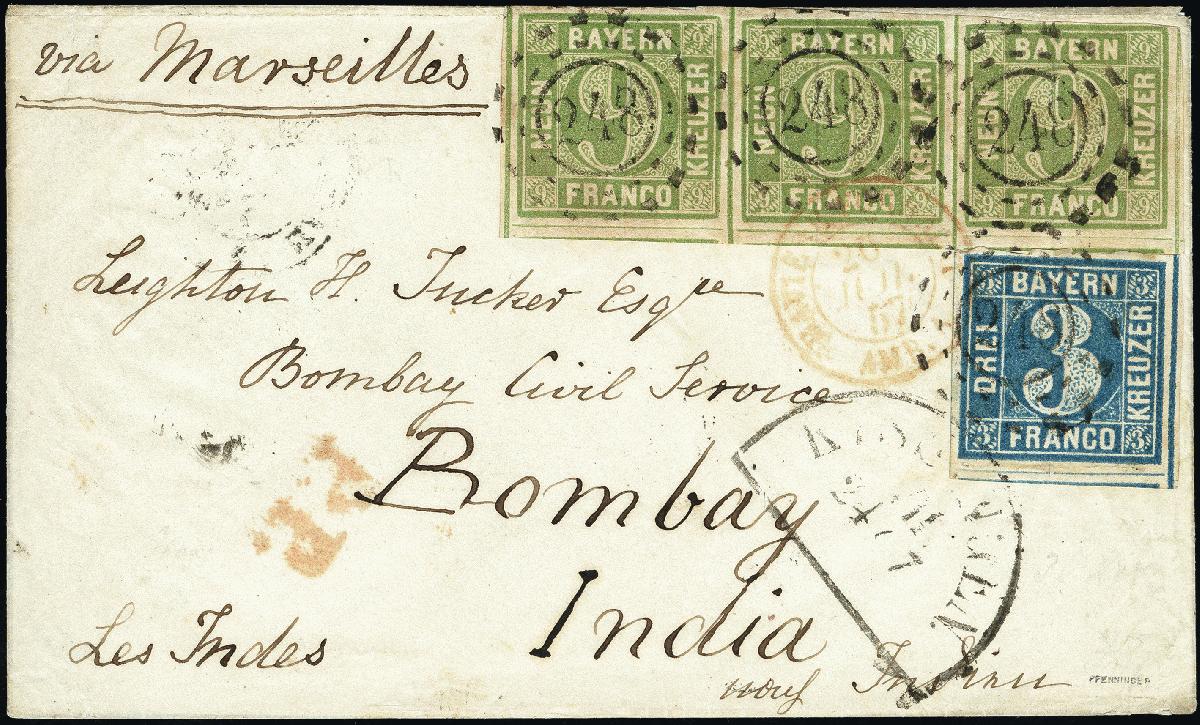 via Marseilles
BAYERN
NEUN
9
KREUZER
FRANCO
248
BAYERN
NEUN
9
KREUZER
FRANCO
248
BAYERN
NEUN
9
KREUZER
FRANCO
248
BAYERN
DREI
3
KREUZER
FRANCO
Leighton H. Tucker Esqre
Bombay Civil Service
Bombay
India
Les Indes
nach Indien
PFENNINGER